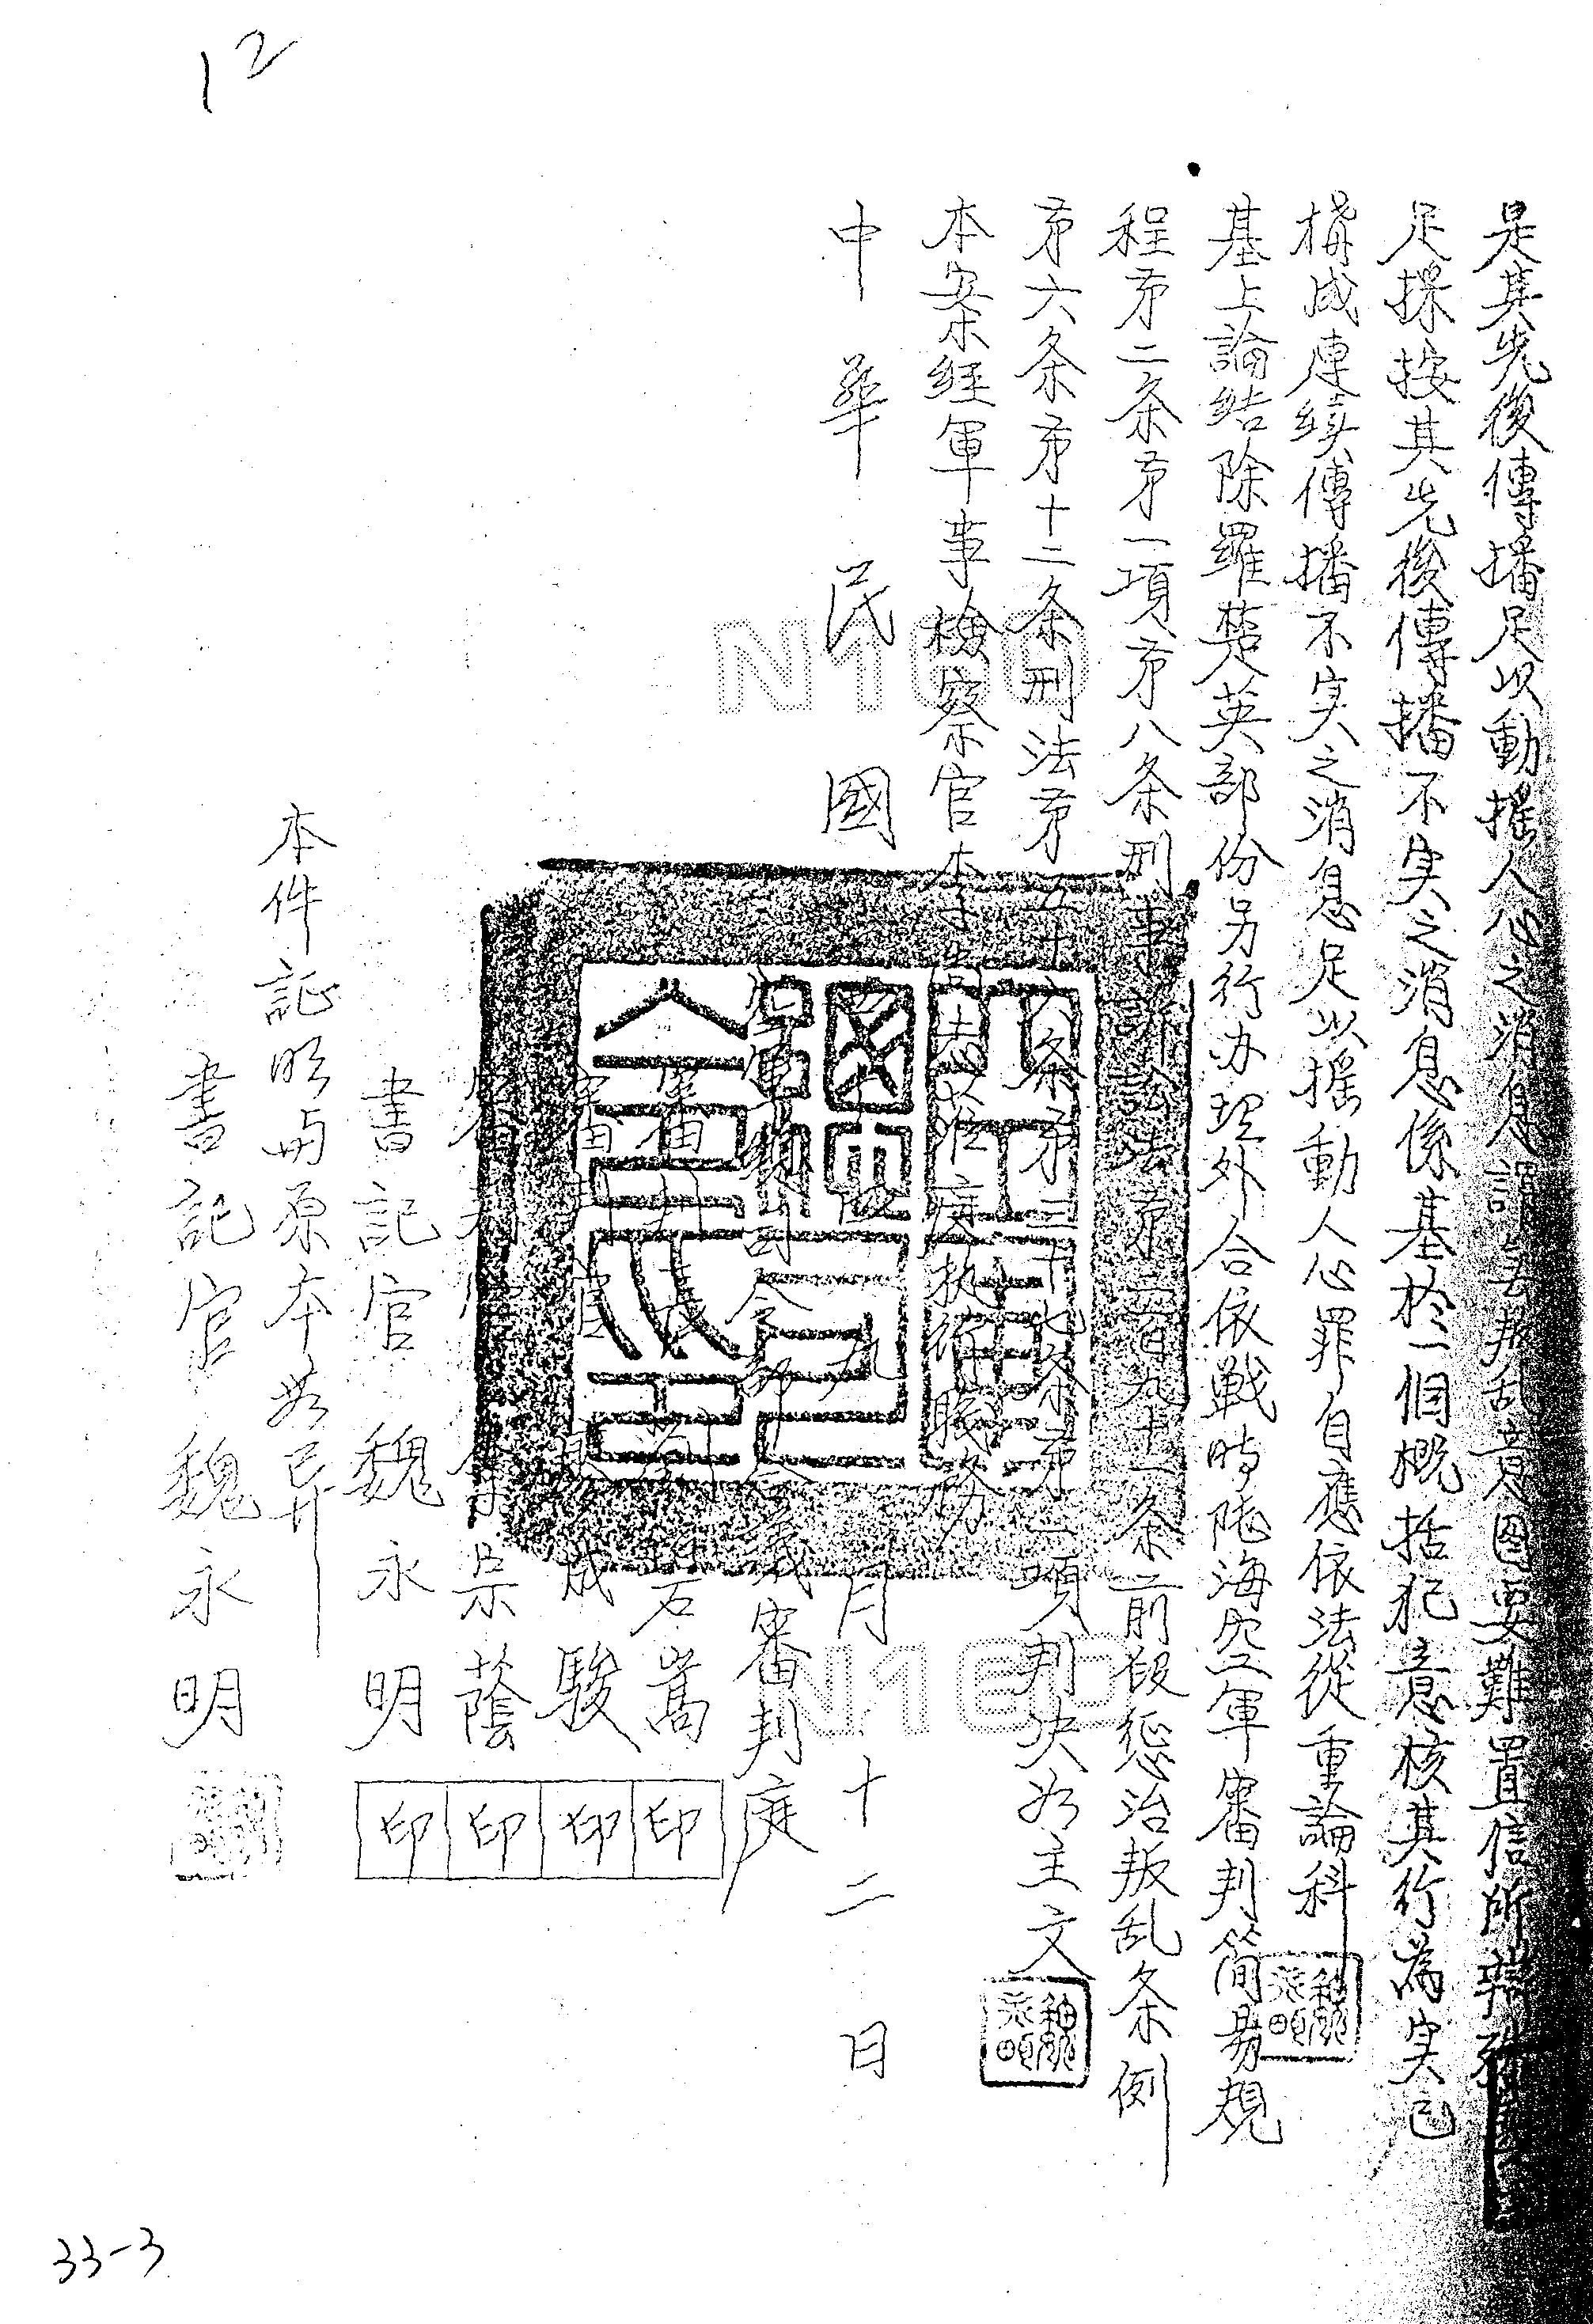 12
是其先後傳播足以動搖人心之消息謂無叛乱意图要難置信所辯殊
足採按其先後傳播不实之消息係基於一個概括犯意核其行為实已
構成連续傳播不实之消息足以搖動人心罪自應依法從重論科
基上論结除羅楚英部份另行办理外合依戰時陸海空軍審判简易規
程第二条第一項第八条刑事訴訟法第二百九十一条前段惩治叛乱条例
第六条第十二条刑法第五十六条第三十七条第二項判决如主文
本案经軍事檢察官李 執行職務
中華民國 九月十二日
軍 司令部 審判庭
審判長 石嵩 印
審判官 成駿 印
審判官 蔭 印
書記官魏永明 印
本件証明与原本无异
書記官魏永明
魏永明
魏永明
N100
33-3